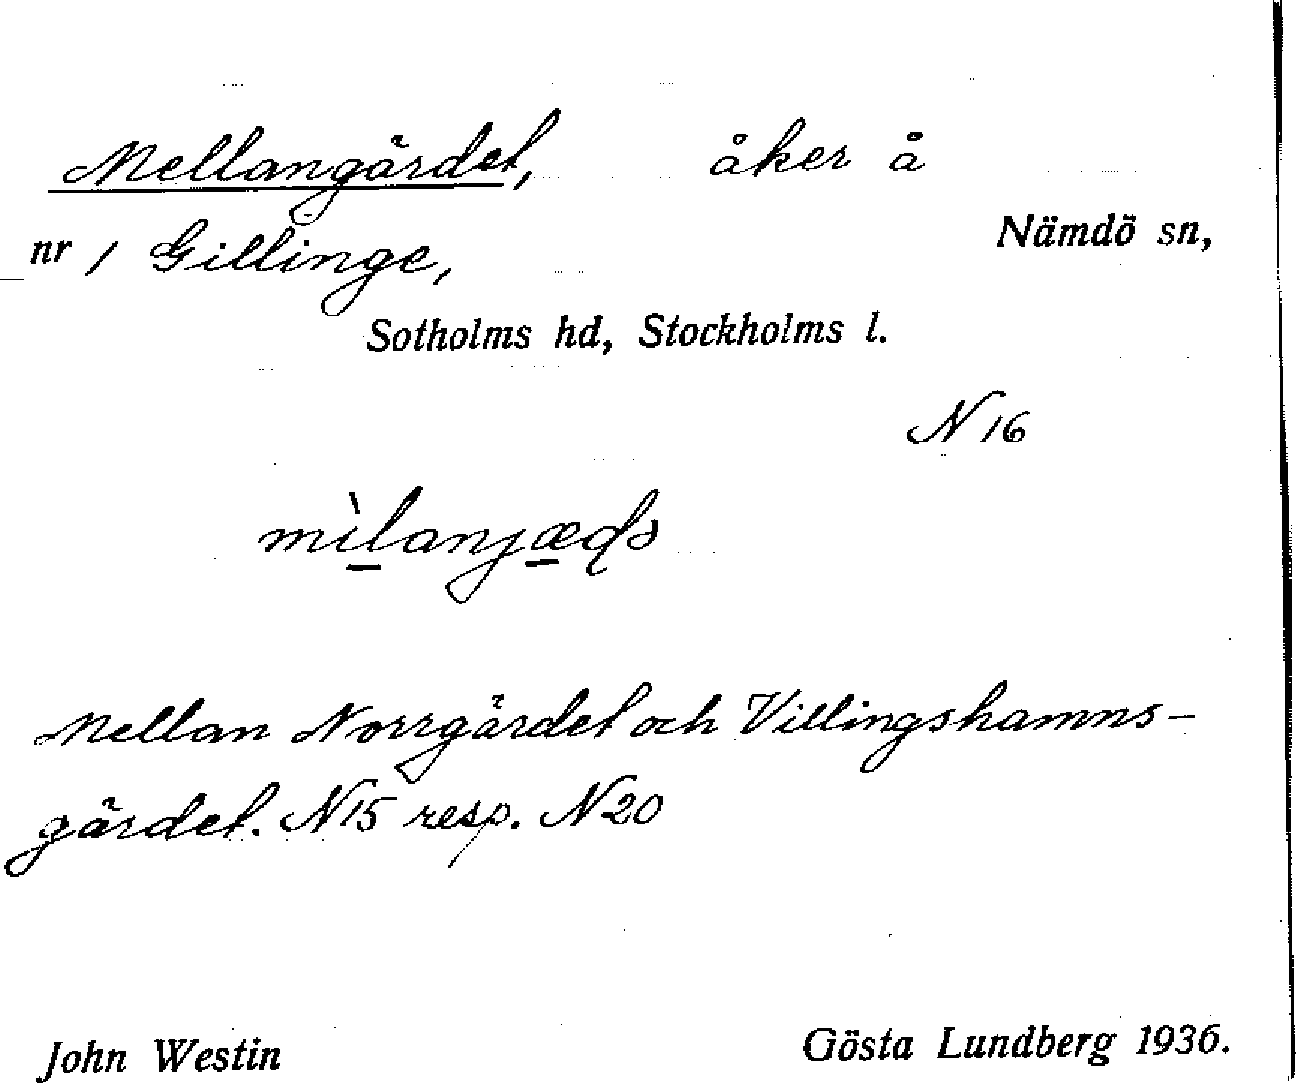 Mellangärdet, åker å
nr 1 Gillinge, Nämdö sn,
Sotholms hd, Stockholms l.
N 16
mìlanjæɖə
Mellan Norrgärdet och Villingshamns-
gärdet. N15 resp. N20
John Westin Gösta Lundberg 1936.